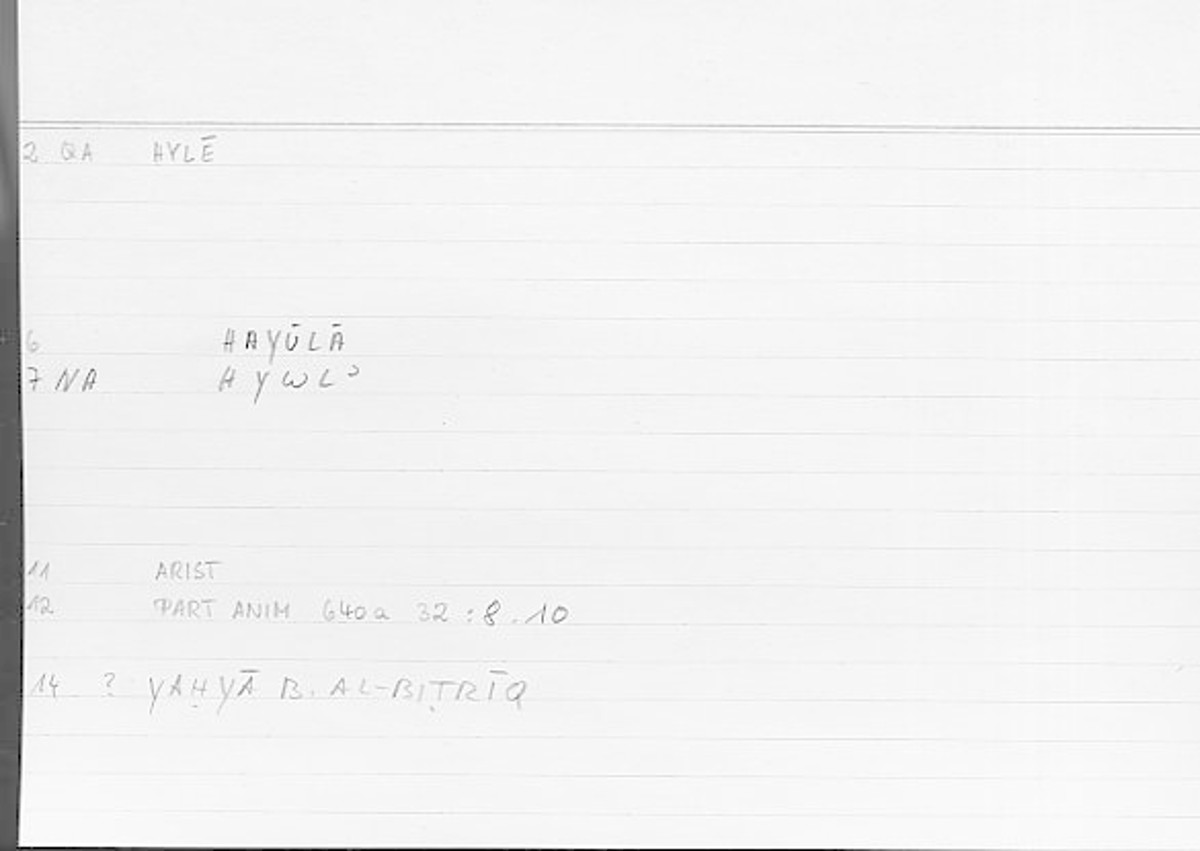 2 QA HYLĒ
6 HAYŪLĀ
7 NA HYWLʾ
11 ARIST
12 PART ANIM 640a 32 : 8.10
14 ? YAḤYĀ B. AL-BIṬRĪQ